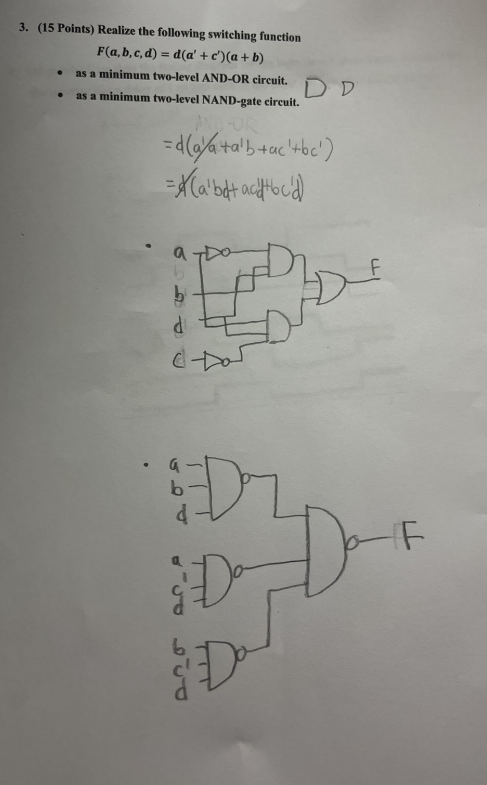 3. (15 Points) Realize the following switching function
F(a, b, c, d) = d(a' + c')(a + b)
• as a minimum two-level AND-OR circuit.
• as a minimum two-level NAND-gate circuit.
=d(a'a+a'b+ac'+bc')
=d(a'bd+ac'd+bc'd)
• a
b
d
c
F
• a
b
d
a
c'
d
b
c'
d
F